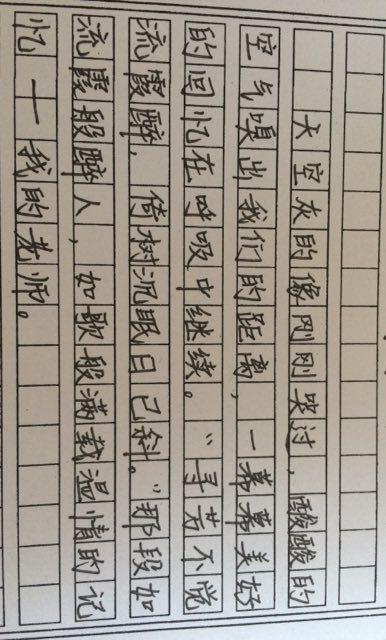 天空灰的像刚刚哭过，酸酸的
空气嗅出我们的距离，一幕幕美好
的回忆在呼吸中继续。“寻芳不觉
流霞醉，倚树沉眠日已斜。”那段如
流霞般醉人，如歌般满载温情的记
忆——我的老师。